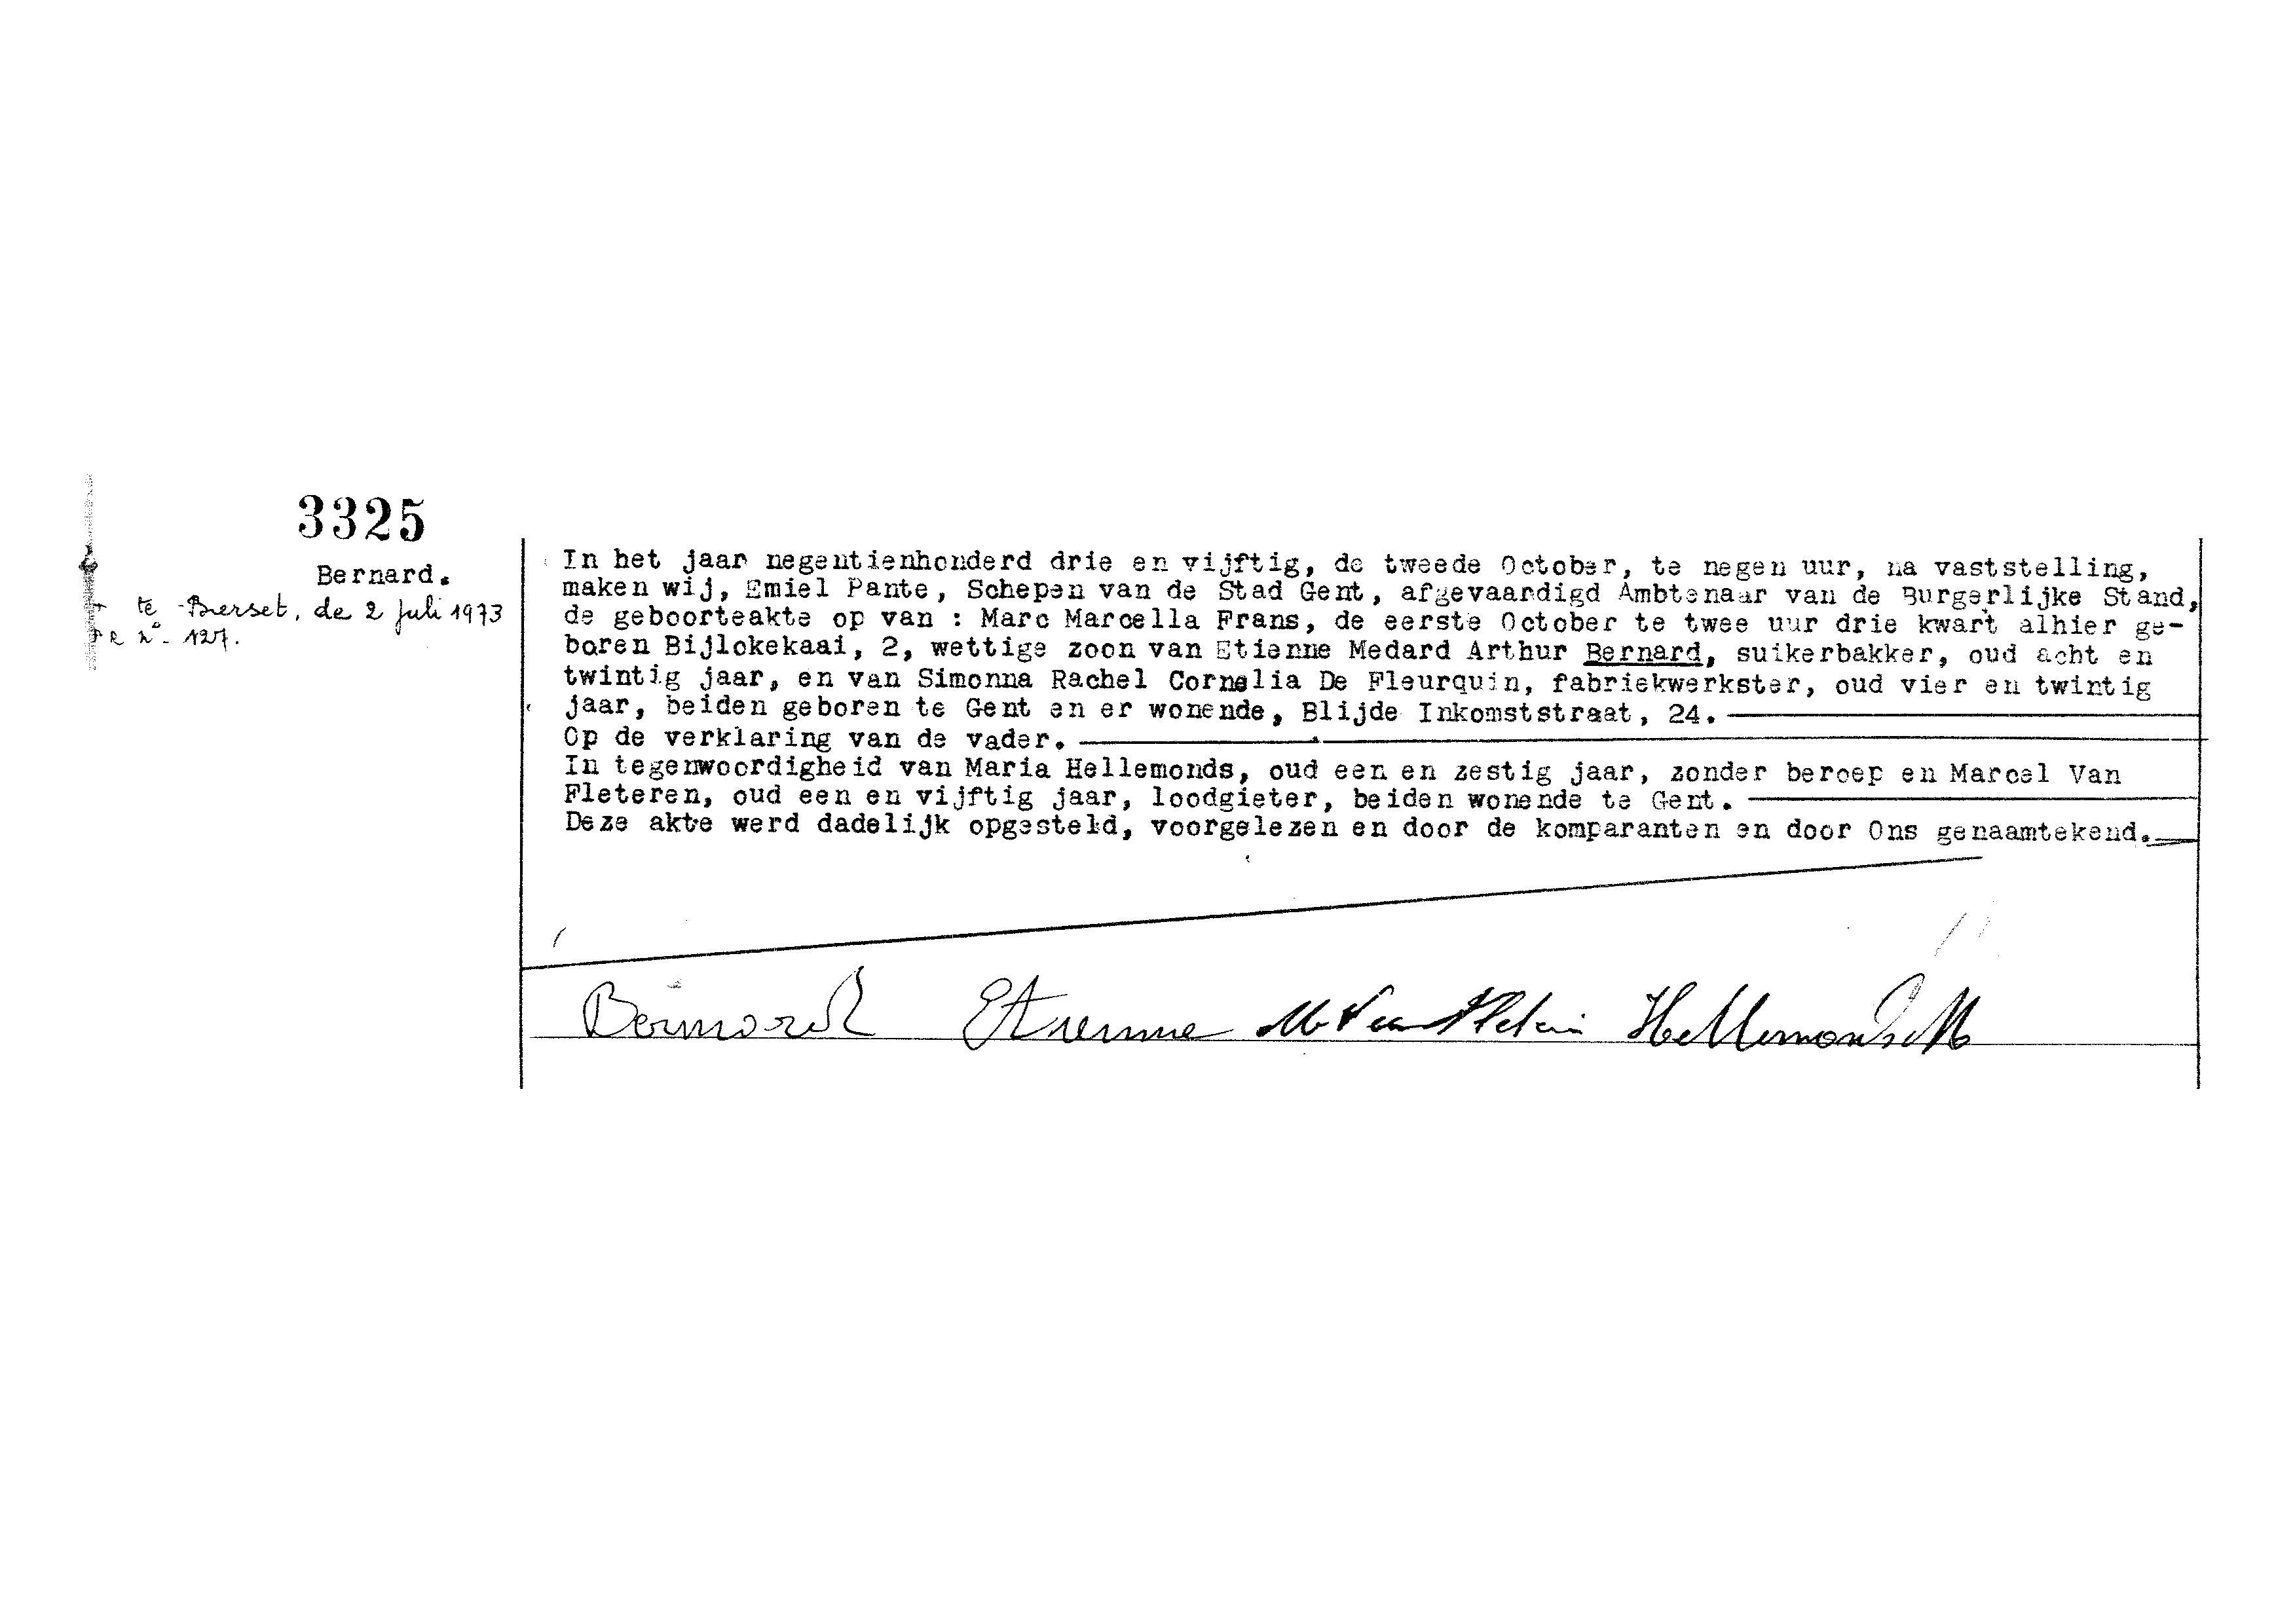 3325
Bernard.
+ te Bierset, de 2 juli 1973
R n° 127.
In het jaar negentienhonderd drie en vijftig, de tweede October, te negen uur, na vaststelling,
maken wij, Emiel Pante, Schepen van de Stad Gent, afgevaardigd Ambtenaar van de Burgerlijke Stand,
de geboorteakte op van : Marc Marcella Frans, de eerste October te twee uur drie kwart alhier ge-
boren Bijlokekaai, 2, wettige zoon van Etienne Medard Arthur Bernard, suikerbakker, oud acht en
twintig jaar, en van Simonna Rachel Cornelia De Fleurquin, fabriekwerkster, oud vier en twintig
jaar, beiden geboren te Gent en er wonende, Blijde Inkomststraat, 24.
Op de verklaring van de vader.
In tegenwoordigheid van Maria Hellemonds, oud een en zestig jaar, zonder beroep en Marcel Van
Fleteren, oud een en vijftig jaar, loodgieter, beiden wonende te Gent.
Deze akte werd dadelijk opgesteld, voorgelezen en door de komparanten en door Ons genaamtekend.
Bernard Etienne M. Van Fleteren Hellemonds M